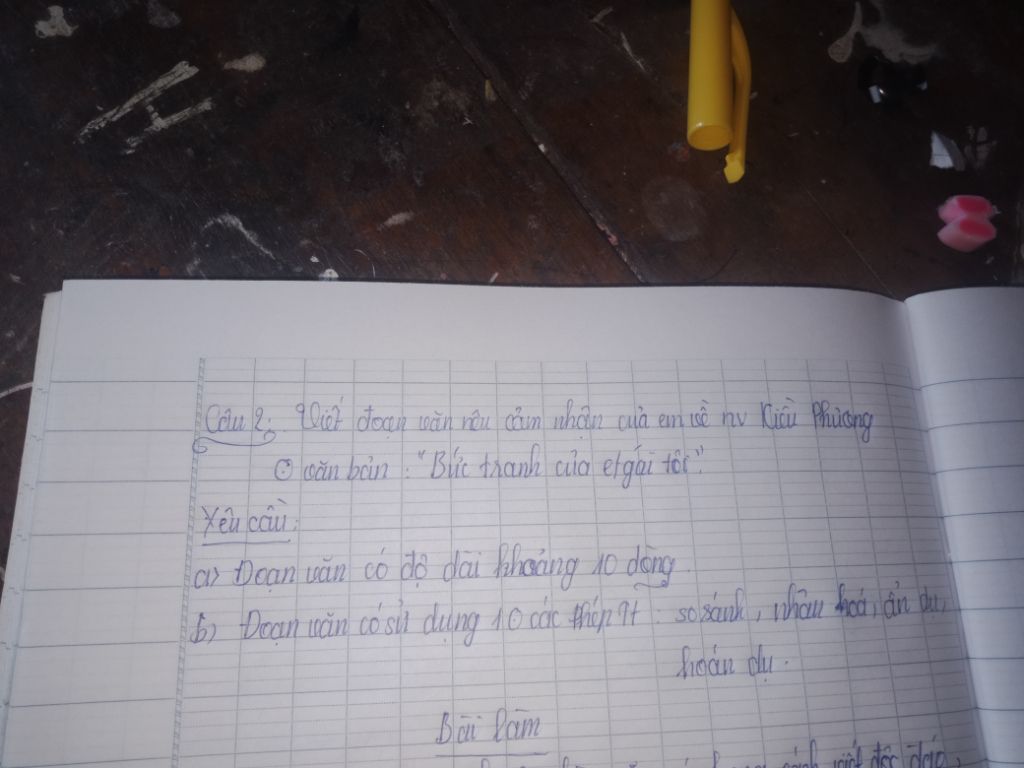 Câu 2: Viết đoạn văn nêu cảm nhận của em về nv Kiều Phương
văn bản: "Bức tranh của e/gái tôi".
Yêu cầu:
a) Đoạn văn có độ dài khoảng 10 dòng.
b) Đoạn văn có sử dụng 1 các : so sánh, nhân hoá, ẩn dụ,
hoán dụ.
Bài làm